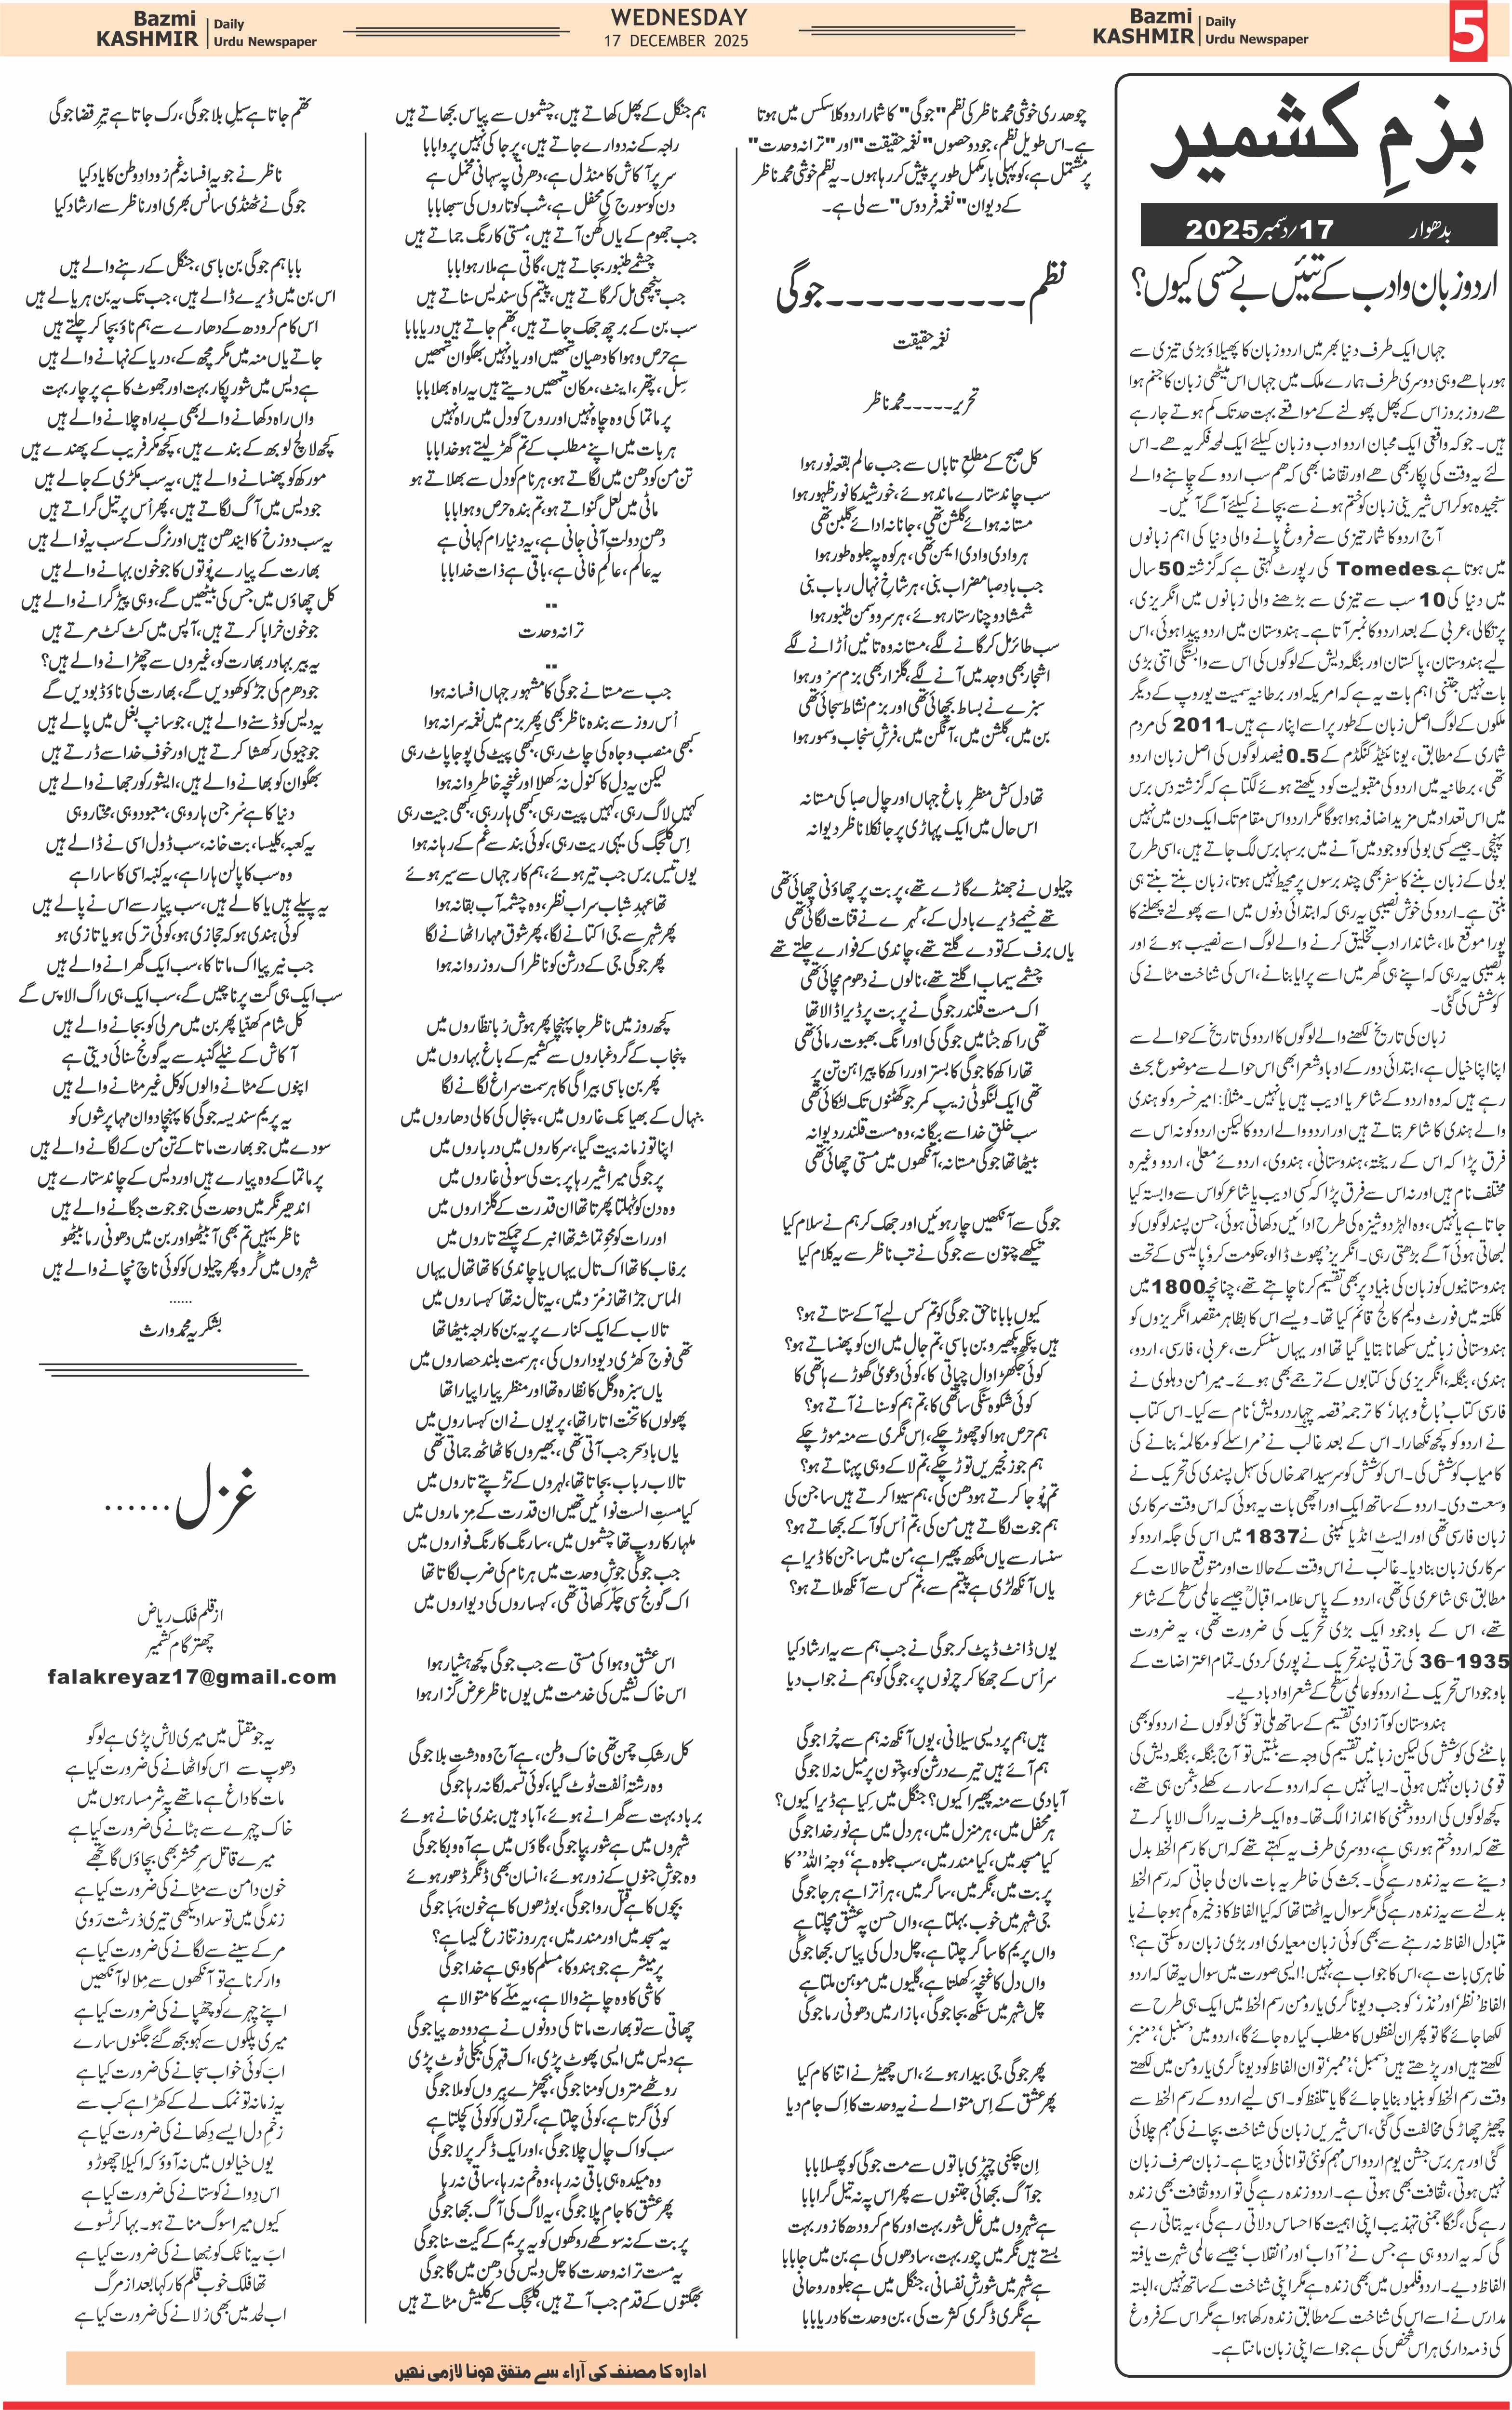 Bazmi
KASHMIR
Daily
Urdu Newspaper
WEDNESDAY
17 DECEMBER 2025
Bazmi
KASHMIR
Daily
Urdu Newspaper
5
بزمِ کشمیر
بدھوار 17/دسمبر 2025
اردو زبان و ادب کے تئیں بے حسی کیوں؟
جہاں ایک طرف دنیا بھر میں اردو زبان کا پھیلاؤ بڑی تیزی سے
ہورہا ھے وہی دوسری طرف ہمارے ملک میں جہاں اس میٹھی زبان کا جنم ہوا
ھے روز بروز اس کے پھل پھولنے کے مواقعے بہت حد تک کم ہوتے جارہے
ہیں۔ جوکہ واقعی ایک محبان اردو ادب و زبان کیلئے ایک لمحہ فکریہ ھے۔ اس
لئے یہ وقت کی پکار بھی ھے اور تقاضا بھی کہ ھم سب اردو کے چاہنے والے
سنجیدہ ہوکر اس شیرینی زبان کو ختم ہونے سے بچانے کیلئے آگے آئیں۔
آج اردو کا شمار تیزی سے فروغ پانے والی دنیا کی اہم زبانوں
میں ہوتا ہے۔Tomedes کی رپورٹ کہتی ہے کہ گزشتہ 50 سال
میں دنیا کی 10 سب سے تیزی سے بڑھنے والی زبانوں میں انگریزی،
پرتگالی، عربی کے بعد اردو کا نمبر آتا ہے۔ ہندوستان میں اردو پیدا ہوئی، اس
لیے ہندوستان، پاکستان اور بنگلہ دیش کے لوگوں کی اس سے وابستگی اتنی بڑی
بات نہیں جتنی اہم بات یہ ہے کہ امریکہ اور برطانیہ سمیت یوروپ کے دیگر
ملکوں کے لوگ اصل زبان کے طور پر اسے اپنا رہے ہیں۔ 2011 کی مردم
شماری کے مطابق، یونائیٹڈ کنگڈم کے 0.5 فیصد لوگوں کی اصل زبان اردو
تھی، برطانیہ میں اردو کی مقبولیت کو دیکھتے ہوئے لگتا ہے کہ گزشتہ دس برس
میں اس تعداد میں مزید اضافہ ہوا ہوگا مگر اردو اس مقام تک ایک دن میں نہیں
پہنچی۔ جیسے کسی بولی کو وجود میں آنے میں برسہا برس لگ جاتے ہیں، اسی طرح
بولی کے زبان بننے کا سفر بھی چند برسوں پر محیط نہیں ہوتا، زبان بنتے بنتے ہی
بنتی ہے۔ اردو کی خوش نصیبی یہ رہی کہ ابتدائی دنوں میں اسے پھولنے پھلنے کا
پورا موقع ملا، شاندار ادب تخلیق کرنے والے لوگ اسے نصیب ہوئے اور
بدنصیبی یہ رہی کہ اپنے ہی گھر میں اسے پرایا بنانے، اس کی شناخت مٹانے کی
کوشش کی گئی۔
زبان کی تاریخ لکھنے والے لوگوں کا اردو کی تاریخ کے حوالے سے
اپنا اپنا خیال ہے، ابتدائی دور کے ادبا و شعرا بھی اس حوالے سے موضوع بحث
رہے ہیں کہ وہ اردو کے شاعر یا ادیب ہیں یا نہیں۔ مثلاً: امیر خسرو کو ہندی
والے ہندی کا شاعر بتاتے ہیں اور اردو والے اردو کا لیکن اردو کو نہ اس سے
فرق پڑا کہ اس کے ریختہ، ہندوستانی، ہندوی، اردوئے معلیٰ، اردو وغیرہ
مختلف نام ہیں اور نہ اس سے فرق پڑا کہ کسی ادیب یا شاعر کو اس سے وابستہ کیا
جاتا ہے یا نہیں، وہ الہڑ دوشیزہ کی طرح ادائیں دکھاتی ہوئی، حسن پسند لوگوں کو
لبھاتی ہوئی آگے بڑھتی رہی۔ انگریز 'پھوٹ ڈالو، حکومت کرو' پالیسی کے تحت
ہندوستانیوں کو زبان کی بنیاد پر بھی تقسیم کرنا چاہتے تھے، چنانچہ 1800 میں
کلکتہ میں فورٹ ولیم کالج قائم کیا تھا۔ ویسے اس کا بظاہر مقصد انگریزوں کو
ہندوستانی زبانیں سکھانا بتایا گیا تھا اور یہاں سنسکرت، عربی، فارسی، اردو،
ہندی، بنگلہ، انگریزی کی کتابوں کے ترجمے بھی ہوئے۔ میر امن دہلوی نے
فارسی کتاب 'باغ و بہار' کا ترجمہ 'قصہ چہار درویش' نام سے کیا۔ اس کتاب
نے اردو کو کچھ نکھارا۔ اس کے بعد غالب نے 'مراسلے کو مکالمہ' بنانے کی
کامیاب کوشش کی۔ اس کوشش کو سرسید احمد خاں کی سہل پسندی کی تحریک نے
وسعت دی۔ اردو کے ساتھ ایک اور اچھی بات یہ ہوئی کہ اس وقت سرکاری
زبان فارسی تھی اور ایسٹ انڈیا کمپنی نے 1837 میں اس کی جگہ اردو کو
سرکاری زبان بنا دیا۔ غالب نے اس وقت کے حالات اور متوقع حالات کے
مطابق ہی شاعری کی تھی، اردو کے پاس علامہ اقبالؒ جیسے عالمی سطح کے شاعر
تھے، اس کے باوجود ایک بڑی تحریک کی ضرورت تھی، یہ ضرورت
1935-36 کی ترقی پسند تحریک نے پوری کر دی۔ تمام اعتراضات کے
باوجود اس تحریک نے اردو کو عالمی سطح کے شعرا و ادبا دیے۔
ہندوستان کو آزادی تقسیم کے ساتھ ملی تو کئی لوگوں نے اردو کو بھی
بانٹنے کی کوشش کی لیکن زبانیں تقسیم کی وجہ سے بنٹتیں تو آج بنگلہ، بنگلہ دیش کی
قومی زبان نہیں ہوتی۔ ایسا نہیں ہے کہ اردو کے سارے کھلے دشمن ہی تھے،
کچھ لوگوں کی اردو دشمنی کا انداز الگ تھا۔ وہ ایک طرف یہ راگ الاپا کرتے
تھے کہ اردو ختم ہو رہی ہے، دوسری طرف یہ کہتے تھے کہ اس کا رسم الخط بدل
دینے سے یہ زندہ رہے گی۔ بحث کی خاطر یہ بات مان لی جاتی کہ رسم الخط
بدلنے سے یہ زندہ رہے گی مگر سوال یہ اٹھتا تھا کہ کیا الفاظ کا ذخیرہ کم ہو جانے یا
متبادل الفاظ نہ رہنے سے بھی کوئی زبان معیاری اور بڑی زبان رہ سکتی ہے؟
ظاہر سی بات ہے، اس کا جواب ہے، نہیں! ایسی صورت میں سوال یہ تھا کہ اردو
الفاظ 'نظر' اور 'نذر' کو جب دیوناگری یا رومن رسم الخط میں ایک ہی طرح سے
لکھا جائے گا تو پھر ان لفظوں کا مطلب کیا رہ جائے گا، اردو میں 'سنبل'، 'منبر'
لکھتے ہیں اور پڑھتے ہیں 'سمبل'، 'ممبر' تو ان الفاظ کو دیوناگری یا رومن میں لکھتے
وقت رسم الخط کو بنیاد بنایا جائے گا یا تلفظ کو۔ اسی لیے اردو کے رسم الخط سے
چھیڑ چھاڑ کی مخالفت کی گئی، اس شیریں زبان کی شناخت بچانے کی مہم چلائی
گئی اور ہر برس جشن یوم اردو اس مہم کو نئی توانائی دیتا ہے۔ زبان صرف زبان
نہیں ہوتی، ثقافت بھی ہوتی ہے۔ اردو زندہ رہے گی تو اردو ثقافت بھی زندہ
رہے گی، گنگا جمنی تہذیب اپنی اہمیت کا احساس دلاتی رہے گی، یہ بتاتی رہے
گی کہ یہ اردو ہی ہے جس نے 'آداب' اور 'انقلاب' جیسے عالمی شہرت یافتہ
الفاظ دیے۔ اردو فلموں میں بھی زندہ ہے مگر اپنی شناخت کے ساتھ نہیں، البتہ
مدارس نے اسے اس کی شناخت کے مطابق زندہ رکھا ہوا ہے مگر اس کے فروغ
کی ذمہ داری ہر اس شخص کی ہے جو اسے اپنی زبان مانتا ہے۔
چوھدری خوشی محمد ناظر کی نظم "جوگی" کا شمار اردو کلاسکس میں ہوتا
ہے۔ اس طویل نظم، جو دو حصوں "نغمہ حقیقت" اور "ترانہ وحدت"
پر مشتمل ہے، کو پہلی بار مکمل طور پر پیش کر رہا ہوں۔ یہ نظم خوشی محمد ناظر
کے دیوان "نغمہ فردوس" سے لی ہے۔
نظم ---------- جوگی
نغمہ حقیقت
تحریر ----- محمد ناظر
کل صبح کے مطلعِ تاباں سے جب عالم بقعہ نور ہوا
سب چاند ستارے ماند ہوئے، خورشید کا نور ظہور ہوا
مستانہ ہوائے گلشن تھی، جانانہ ادائے گلبن تھی
ہر وادی وادی ایمن تھی، ہر کوہ پہ جلوہ طور ہوا
جب بادِ صبا مضراب بنی، ہر شاخِ نہال رباب بنی
شمشاد و چنار ستار ہوئے، ہر سرو و سمن طنبور ہوا
سب طائر مل کر گانے لگے، مستانہ وہ تانیں اُڑانے لگے
اشجار بھی وجد میں آنے لگے، گلزار بھی بزمِ سرُور ہوا
سبزے نے بساط بچھائی تھی اور بزمِ نشاط سجائی تھی
بن میں، گلشن میں، آنگن میں، فرشِ سنجاب و سمور ہوا
تھا دل کش منظرِ باغِ جہاں اور چال صبا کی مستانہ
اس حال میں ایک پہاڑی پر جا نکلا ناظر دیوانہ
چیلوں نے جھنڈے گاڑے تھے، پربت پر چھاؤنی چھائی تھی
تھے خیمے ڈیرے بادل کے، کُہرے نے قنات لگائی تھی
یاں برف کے تودے گلتے تھے، چاندی کے فوارے چلتے تھے
چشمے سیماب اگلتے تھے، نالوں نے دھوم مچائی تھی
اک مست قلندر جوگی نے پربت پر ڈیرا ڈالا تھا
تھی راکھ جٹا میں جوگی کی اور انگ بھبوت رمائی تھی
تھا راکھ کا جوگی کا بستر اور راکھ کا پیراہن تن پر
تھی ایک لنگوٹی زیبِ کمر جو گھٹنوں تک لٹکائی تھی
سب خلقِ خدا سے بیگانہ، وہ مست قلندر دیوانہ
بیٹھا تھا جوگی مستانہ، آنکھوں میں مستی چھائی تھی
جوگی سے آنکھیں چار ہوئیں اور جھک کر ہم نے سلام کیا
تیکھے چتون سے جوگی نے تب ناظر سے یہ کلام کیا
کیوں بابا ناحق جوگی کو تم کس لیے آ کے ستاتے ہو؟
ہیں پنکھ پکھیرو بن باسی، تم جال میں ان کو پھنساتے ہو؟
کوئی جھگڑا دال چپاتی کا، کوئی دعویٰ گھوڑے ہاتھی کا
کوئی شکوہ سنگی ساتھی کا، تم ہم کو سنانے آتے ہو؟
ہم حرص ہوا کو چھوڑ چکے، اِس نگری سے منہ موڑ چکے
ہم جو زنجیریں توڑ چکے، تم لا کے وہی پہناتے ہو؟
تم پُوجا کرتے ہو دھن کی، ہم سیوا کرتے ہیں ساجن کی
ہم جوت لگاتے ہیں من کی، تم اُس کو آ کے بجھاتے ہو؟
سنسار سے یاں مُکھ پھیرا ہے، من میں ساجن کا ڈیرا ہے
یاں آنکھ لڑی ہے پیتم سے، تم کس سے آنکھ ملاتے ہو؟
یوں ڈانٹ ڈپٹ کر جوگی نے جب ہم سے یہ ارشاد کیا
سر اُس کے جھکا کر چرنوں پر، جوگی کو ہم نے جواب دیا
ہیں ہم پردیسی سیلانی، یوں آنکھ نہ ہم سے چُرا جوگی
ہم آئے ہیں تیرے درشن کو، چِتون پر میل نہ لا جوگی
آبادی سے منہ پھیرا کیوں؟ جنگل میں کِیا ہے ڈیرا کیوں؟
ہر محفل میں، ہر منزل میں، ہر دل میں ہے نورِ خدا جوگی
کیا مسجد میں، کیا مندر میں، سب جلوہ ہے "وجہُ اللہ" کا
پربت میں، نگر میں، ساگر میں، ہر اُترا ہے ہر جا جوگی
جی شہر میں خوب بہلتا ہے، واں حسن پہ عشق مچلتا ہے
واں پریم کا ساگر چلتا ہے، چل دل کی پیاس بجھا جوگی
واں دل کا غنچہ کِھلتا ہے، گلیوں میں موہن ملتا ہے
چل شہر میں سنکھ بجا جوگی، بازار میں دھونی رما جوگی
پھر جوگی جی بیدار ہوئے، اس چھیڑ نے اتنا کام کیا
پھر عشق کے اِس متوالے نے یہ وحدت کا اِک جام دیا
اِن چکنی چپڑی باتوں سے مت جوگی کو پھسلا بابا
جو آگ بجھائی جتنوں سے پھر اس پہ نہ تیل گرا بابا
ہے شہروں میں غل شور بہت اور کام کرودھ کا زور بہت
بستے ہیں نگر میں چور بہت، سادھوں کی ہے بن میں جا بابا
ہے شہر میں شورشِ نفسانی، جنگل میں ہے جلوہ روحانی
ہے نگری ڈگری کثرت کی، بن وحدت کا دریا بابا
ہم جنگل کے پھل کھاتے ہیں، چشموں سے پیاس بجھاتے ہیں
راجہ کے نہ دوارے جاتے ہیں، پرجا کی نہیں پروا بابا
سر پر آکاش کا منڈل ہے، دھرتی پہ سہانی مخمل ہے
دن کو سورج کی محفل ہے، شب کو تاروں کی سبھا بابا
جب جھوم کے یاں گھن آتے ہیں، مستی کا رنگ جماتے ہیں
چشمے طنبور بجاتے ہیں، گاتی ہے ملار ہوا بابا
جب پنچھی مل کر گاتے ہیں، پیتم کی سندیس سناتے ہیں
سب بن کے برچھ جھک جاتے ہیں، تھم جاتے ہیں دریا بابا
ہے حرص و ہوا کا دھیان تمھیں اور یاد نہیں بھگوان تمھیں
سِل، پتھر، اینٹ، مکان تمھیں دیتے ہیں یہ راہ بھلا بابا
پرماتما کی وہ چاہ نہیں اور روح کو دل میں راہ نہیں
ہر بات میں اپنے مطلب کے تم گھڑ لیتے ہو خدا بابا
تن من کو دھن میں لگاتے ہو، ہر نام کو دل سے بھلاتے ہو
ماٹی میں لعل گنواتے ہو، تم بندہ حرص و ہوا بابا
دھن دولت آنی جانی ہے، یہ دنیا رام کہانی ہے
یہ عالَم، عالَمِ فانی ہے، باقی ہے ذاتِ خدا بابا
..
ترانہ وحدت
..
جب سے مستانے جوگی کا مشہورِ جہاں افسانہ ہوا
اُس روز سے بندہ ناظر بھی پھر بزم میں نغمہ سرا نہ ہوا
کبھی منصب و جاہ کی چاٹ رہی، کبھی پیٹ کی پوجا پاٹ رہی
لیکن یہ دل کا کنول نہ کِھلا اور غنچہ خاطر وا نہ ہوا
کہیں لاگ رہی، کہیں پیت رہی، کبھی ہار رہی، کبھی جیت رہی
اِس کلجگ کی یہی ریت رہی، کوئی بند سے غم کے رہا نہ ہوا
یوں تیس برس جب تیر ہوئے، ہم کارِ جہاں سے سیر ہوئے
تھا عہدِ شباب سرابِ نظر، وہ چشمہ آبِ بقا نہ ہوا
پھر شہر سے جی اکتانے لگا، پھر شوق مہار اٹھانے لگا
پھر جوگی جی کے درشن کو ناظر اک روز روانہ ہوا
کچھ روز میں ناظر جا پہنچا پھر ہوش رُبا نظّاروں میں
پنجاب کے گرد غباروں سے کشمیر کے باغ بہاروں میں
پھر بن باسی بیراگی کا ہر سمت سراغ لگانے لگا
بنہال کے بھیانک غاروں میں، پنجال کی کالی دھاروں میں
اپنا تو زمانہ بیت گیا، سرکاروں میں درباروں میں
پر جوگی میرا شیر رہا پربت کی سونی غاروں میں
وہ دن کو ٹہلتا پھرتا تھا ان قدرت کے گلزاروں میں
اور رات کو محوِ تماشہ تھا انبر کے چمکتے تاروں میں
برفاب کا تھا اک تال یہاں یا چاندی کا تھا تھال یہاں
الماس جڑا تھا زمُرّد میں، یہ تال نہ تھا کہساروں میں
تالاب کے ایک کنارے پر یہ بن کا راجہ بیٹھا تھا
تھی فوج کھڑی دیوداروں کی، ہر سمت بلند حصاروں میں
یاں سبزہ و گل کا نظارہ تھا اور منظر پیارا پیارا تھا
پھولوں کا تخت اتارا تھا، پریوں نے ان کہساروں میں
یاں بادِ سحر جب آتی تھی، بھیروں کا ٹھاٹھ جماتی تھی
تالاب رباب بجاتا تھا، لہروں کے تڑپتے تاروں میں
کیا مستِ الست نوائیں تھیں ان قدرت کے مِزماروں میں
ملہار کا روپ تھا چشموں میں، سارنگ کا رنگ فواروں میں
جب جوگی جوشِ وحدت میں ہرنام کی ضرب لگاتا تھا
اک گونج سی چکّر کھاتی تھی، کہساروں کی دیواروں میں
اس عشق و ہوا کی مستی سے جب جوگی کچھ ہشیار ہوا
اس خاک نشیں کی خدمت میں یوں ناظر عرض گزار ہوا
کل رشکِ چمن تھی خاکِ وطن، ہے آج وہ دشتِ بلا جوگی
وہ رشتہ اُلفت ٹوٹ گیا، کوئی تسمہ لگا نہ رہا جوگی
برباد بہت سے گھرانے ہوئے، آباد ہیں بندی خانے ہوئے
شہروں میں ہے شور بپا جوگی، گاؤں میں ہے آہ و بکا جوگی
وہ جوشِ جنوں کے زور ہوئے، انسان بھی ڈنگر ڈھور ہوئے
بچوں کا ہے قتل روا جوگی، بوڑھوں کا ہے خون ہبا جوگی
یہ مسجد میں اور مندر میں، ہر روز تنازع کیسا ہے؟
پرمیشر ہے جو ہندو کا، مسلم کا وہی ہے خدا جوگی
کاشی کا وہ چاہنے والا ہے، یہ مکّے کا متوالا ہے
چھاتی سے تو بھارت ماتا کی دونوں نے ہے دودھ پیا جوگی
ہے دیس میں ایسی پھوٹ پڑی، اک قہر کی بجلی ٹوٹ پڑی
روٹھے متروں کو منا جوگی، بچھڑے بِیروں کو ملا جوگی
کوئی گرتا ہے، کوئی چلتا ہے، گرتوں کو کوئی کچلتا ہے
سب کو اک چال چلا جوگی، اور ایک ڈگر پر لا جوگی
وہ میکدہ ہی باقی نہ رہا، وہ خم نہ رہا، ساقی نہ رہا
پھر عشق کا جام پلا جوگی، یہ لاگ کی آگ بجھا جوگی
پربت کے نہ سوکھے روکھوں کو یہ پریم کے گیت سنا جوگی
یہ مست ترانہ وحدت کا چل دیس کی دھن میں گا جوگی
بھگتوں کے قدم جب آتے ہیں، کلجگ کے کلیش مٹاتے ہیں
تھم جاتا ہے سیلِ بلا جوگی، رک جاتا ہے تیرِ قضا جوگی
ناظر نے جو یہ افسانہ غم رُودادِ وطن کا یاد کیا
جوگی نے ٹھنڈی سانس بھری اور ناظر سے ارشاد کیا
بابا ہم جوگی بن باسی، جنگل کے رہنے والے ہیں
اس بن میں ڈیرے ڈالے ہیں، جب تک یہ بن ہریالے ہیں
اس کام کرودھ کے دھارے سے ہم ناؤ بچا کر چلتے ہیں
جاتے یاں منہ میں مگر مچھ کے، دریا کے نہانے والے ہیں
ہے دیس میں شور پکار بہت اور جھوٹ کا ہے پرچار بہت
واں راہ دکھانے والے بھی بے راہ چلانے والے ہیں
کچھ لالچ لوبھ کے بندے ہیں، کچھ مکر فریب کے پھندے ہیں
مورکھ کو پھنسانے والے ہیں، یہ سب مکڑی کے جالے ہیں
جو دیس میں آگ لگاتے ہیں، پھر اُس پر تیل گراتے ہیں
یہ سب دوزخ کا ایندھن ہیں اور نرگ کے سب یہ نوالے ہیں
بھارت کے پیارے پُوتوں کا جو خون بہانے والے ہیں
کل چھاؤں میں جس کی بیٹھیں گے، وہی پیڑ گرانے والے ہیں
جو خون خرابا کرتے ہیں، آپس میں کٹ کٹ مرتے ہیں
یہ بیر بہادر بھارت کو، غیروں سے چھڑانے والے ہیں؟
جو دھرم کی جڑ کو کھودیں گے، بھارت کی ناؤ ڈبو دیں گے
یہ دیس کو ڈسنے والے ہیں، جو سانپ بغل میں پالے ہیں
جو جیو کی رکھشا کرتے ہیں اور خوفِ خدا سے ڈرتے ہیں
بھگوان کو بھانے والے ہیں، ایشور کو رجھانے والے ہیں
دنیا کا ہے سُرجن ہار وہی، معبود وہی، مختار وہی
یہ کعبہ، کلیسا، بت خانہ، سب ڈول اسی نے ڈالے ہیں
وہ سب کا پالن ہارا ہے، یہ کنبہ اسی کا سارا ہے
یہ پیلے ہیں یا کالے ہیں، سب پیار سے اس نے پالے ہیں
کوئی ہندی ہو کہ حجازی ہو، کوئی ترکی ہو یا تازی ہو
جب نیر پیا اک ماتا کا، سب ایک گھرانے والے ہیں
سب ایک ہی گت پر ناچیں گے، سب ایک ہی راگ الاپیں گے
کل شام کھنّیا پھر بن میں مرلی کو بجانے والے ہیں
آکاش کے نیلے گنبد سے یہ گونج سنائی دیتی ہے
اپنوں کے مٹانے والوں کو کل غیر مٹانے والے ہیں
یہ پریم سندیسہ جوگی کا پہنچا دو ان مہاپرشوں کو
سودے میں جو بھارت ماتا کے تن من کے لگانے والے ہیں
پرماتما کے وہ پیارے ہیں اور دیس کے چاند ستارے ہیں
اندھیر نگر میں وحدت کی جو جوت جگانے والے ہیں
ناظر یہیں تم بھی آ بیٹھو اور بن میں دھونی رما بیٹھو
شہروں میں گُرو پھر چیلوں کو کوئی ناچ نچانے والے ہیں
......
بشکریہ محمد وارث
غزل......
از قلم فلک ریاض
چھتر گام کشمیر
falakreyaz17@gmail.com
یہ جو مقتل میں میری لاش پڑی ہے لوگو
دھوپ سے اس کو اٹھانے کی ضرورت کیا ہے
مات کا داغ ہے ماتھے پہ شرمسار ہوں میں
خاک چہرے سے ہٹانے کی ضرورت کیا ہے
میرے قاتل سرِ محشر بھی بچاؤں گا تجھے
خون دامن سے مٹانے کی ضرورت کیا ہے
زندگی میں تو سدا دیکھی تیری دُرشت رَوی
مر کے سینے سے لگانے کی ضرورت کیا ہے
وار کرنا ہے تو آنکھوں سے مِلا لو آنکھیں
اپنے چہرے کو چھپانے کی ضرورت کیا ہے
میری پلکوں سے کہو بجھ گئے جگنوں سارے
اب کوئی خواب سجانے کی ضرورت کیا ہے
یہ زمانہ تو نمک لے کے کھڑا ہے کب سے
زخمِ دل ایسے دکھانے کی ضرورت کیا ہے
یوں خیالوں میں نہ آؤ کہ اکیلا چھوڑو
اس دِوانے کو ستانے کی ضرورت کیا ہے
کیوں میرا سوگ مناتے ہو۔ بہا کر ٹسوے
اب یہ ناٹک کو نبھانے کی ضرورت کیا ہے
تھا فلک خوب قلم کار کہا بعد از مرگ
اب لحد میں بھی رُلانے کی ضرورت کیا ہے
ادارہ کا مصنف کی آراء سے متفق ہونا لازمی نہیں